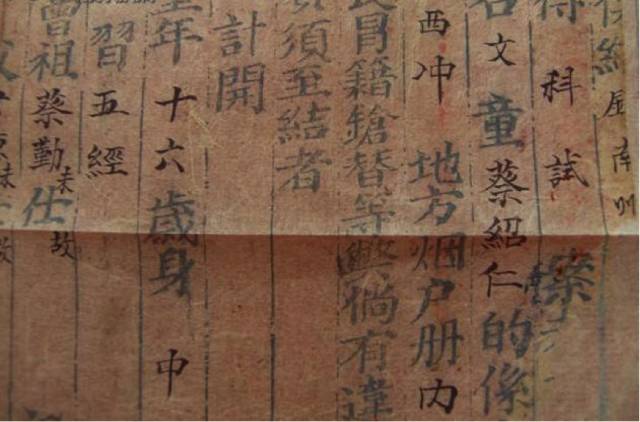 結
科試
文童蔡紹仁的係
西冲地方烟户册内
冒籍鎗替等弊倘有違
須至結者
計開
年十六歲身中
習五經
曾祖蔡勤未仕故